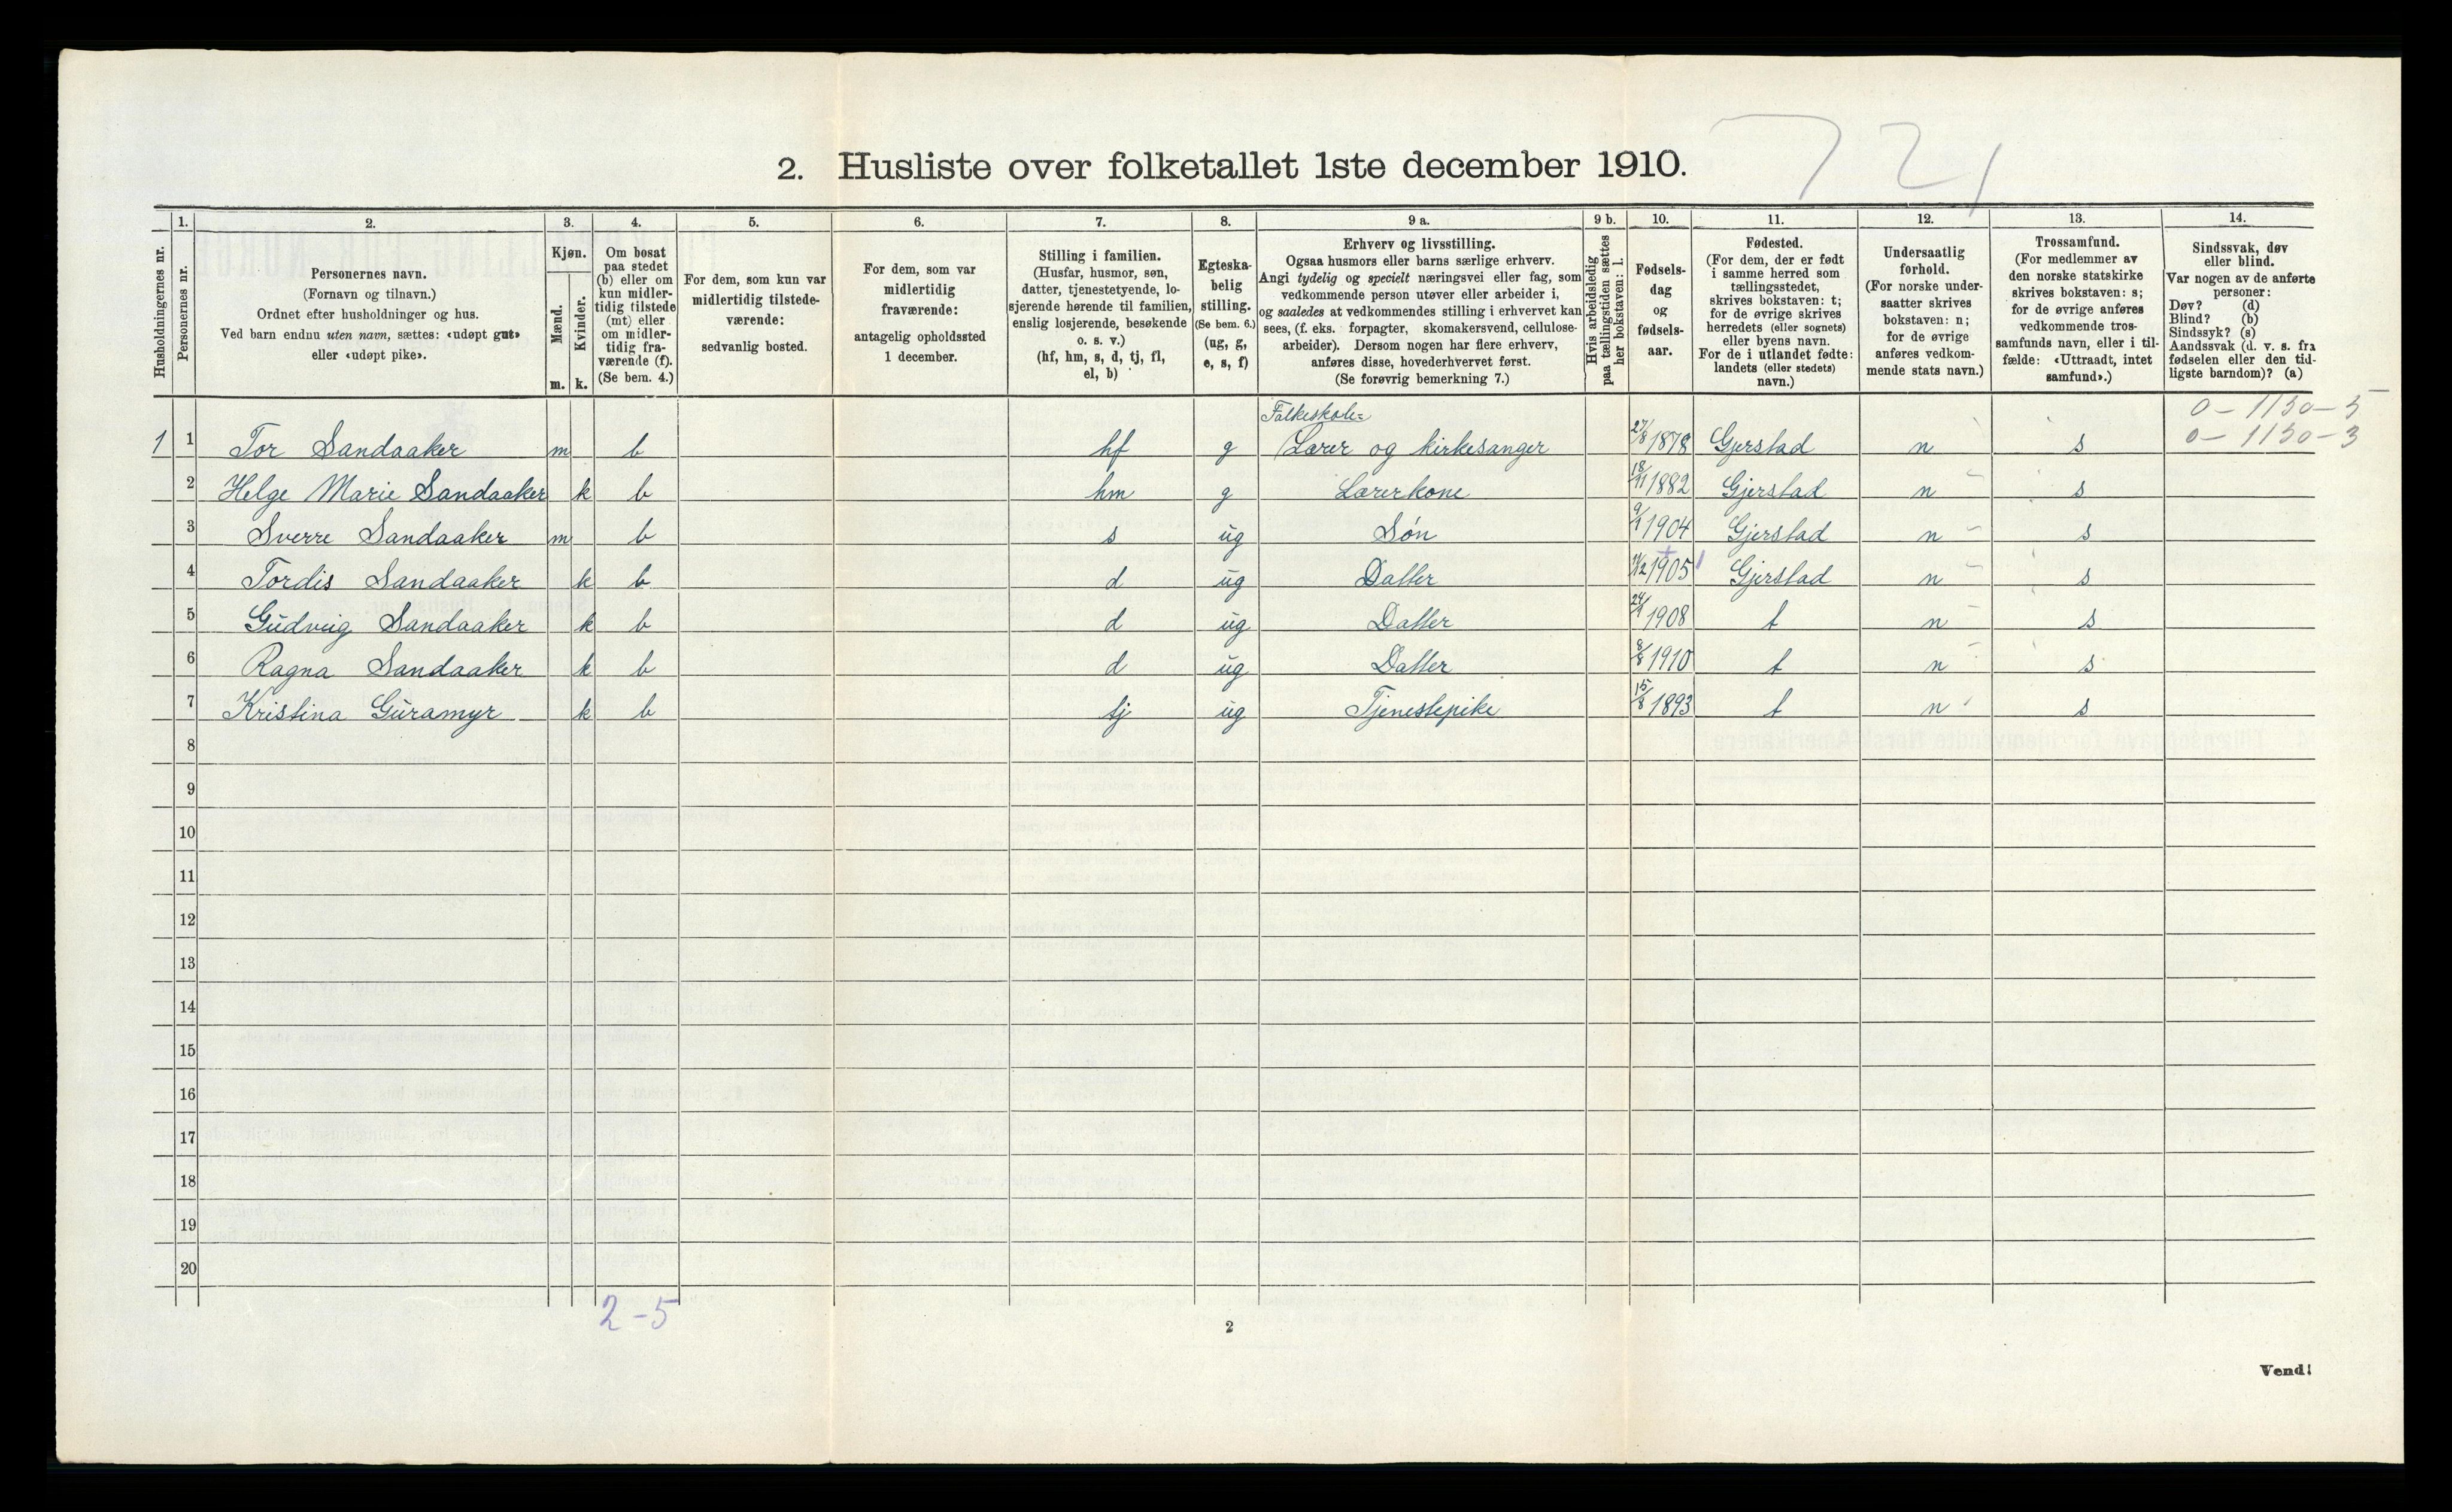 721
2. Husliste over folketallet 1ste december 1910.
Husholdningernes nr.
1. Personernes nr.
2. Personernes navn.
(Fornavn og tilnavn.)
Ordnet efter husholdninger og hus.
Ved barn endnu uten navn, sættes: «udøpt gut»
eller «udøpt pike».
3. Kjøn.
Mænd. m.
Kvinder. k.
4. Om bosat
paa stedet
(b) eller om
kun midler-
tidig tilstede
(mt) eller
om midler-
tidig fra-
værende (f).
(Se bem. 4.)
5. For dem, som kun var
midlertidig tilstede-
værende:
sedvanlig bosted.
6. For dem, som var
midlertidig
fraværende:
antagelig opholdssted
1 december.
7. Stilling i familien.
(Husfar, husmor, søn,
datter, tjenestetyende, lo-
sjerende hørende til familien,
enslig losjerende, besøkende
o. s. v.)
(hf, hm, s, d, tj, fl,
el, b)
8. Egteska-
belig
stilling.
(Se bem. 6.)
(ug, g,
e, s, f)
9 a. Erhverv og livsstilling.
Ogsaa husmors eller barns særlige erhverv.
Angi tydelig og specielt næringsvei eller fag, som
vedkommende person utøver eller arbeider i,
og saaledes at vedkommendes stilling i erhvervet kan
sees, (f. eks. forpagter, skomakersvend, cellulose-
arbeider). Dersom nogen har flere erhverv,
anføres disse, hovederhvervet først.
(Se forøvrig bemerkning 7.)
9 b. Hvis arbeidsledig
paa tællingstiden sættes
her bokstaven: l.
10. Fødsels-
dag
og
fødsels-
aar.
11. Fødested.
(For dem, der er født
i samme herred som
tællingsstedet,
skrives bokstaven: t;
for de øvrige skrives
herredets (eller sognets)
eller byens navn.
For de i utlandet fødte:
landets (eller stedets)
navn.)
12. Undersaatlig
forhold.
(For norske under-
saatter skrives
bokstaven: n;
for de øvrige
anføres vedkom-
mende stats navn.)
13. Trossamfund.
(For medlemmer av
den norske statskirke
skrives bokstaven: s;
for de øvrige anføres
vedkommende tros-
samfunds navn, eller i til-
fælde: «Uttraadt, intet
samfund».)
14. Sindssvak, døv
eller blind.
Var nogen av de anførte
personer:
Døv? (d)
Blind? (b)
Sindssyk? (s)
Aandssvak (d. v. s. fra
fødselen eller den tid-
ligste barndom)? (a)
0 - 1150 - 5
0 - 1150 - 3
Folkeskole=
1 1 Tor Sandaaker m b hf g Lærer og kirkesanger 27/8 1878 Gjerstad n s
2 Helge Marie Sandaaker k b hm g Lærerkone 18/11 1882 Gjerstad n s
3 Sverre Sandaaker m b s ug Søn 9/1 1904 Gjerstad n s
4 Tordis Sandaaker k b d ug Datter 11/12 1905 Gjerstad n s
5 Gudveig Sandaaker k b d ug Datter 24/1 1908 t n s
6 Ragna Sandaaker k b d ug Datter 8/8 1910 t n s
7 Kristina Guramyr k b tj ug Tjenestepike 15/8 1893 t n s
8
9
10
11
12
13
14
15
16
17
18
19
20
2-5
2
Vend!